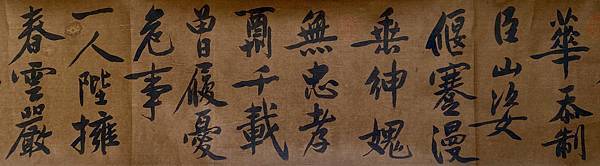 華忝制
臣山姿
偃蹇漫
垂紳媿
無忠孝
千載
曾履憂
危事
一人陛擁
春雲嚴